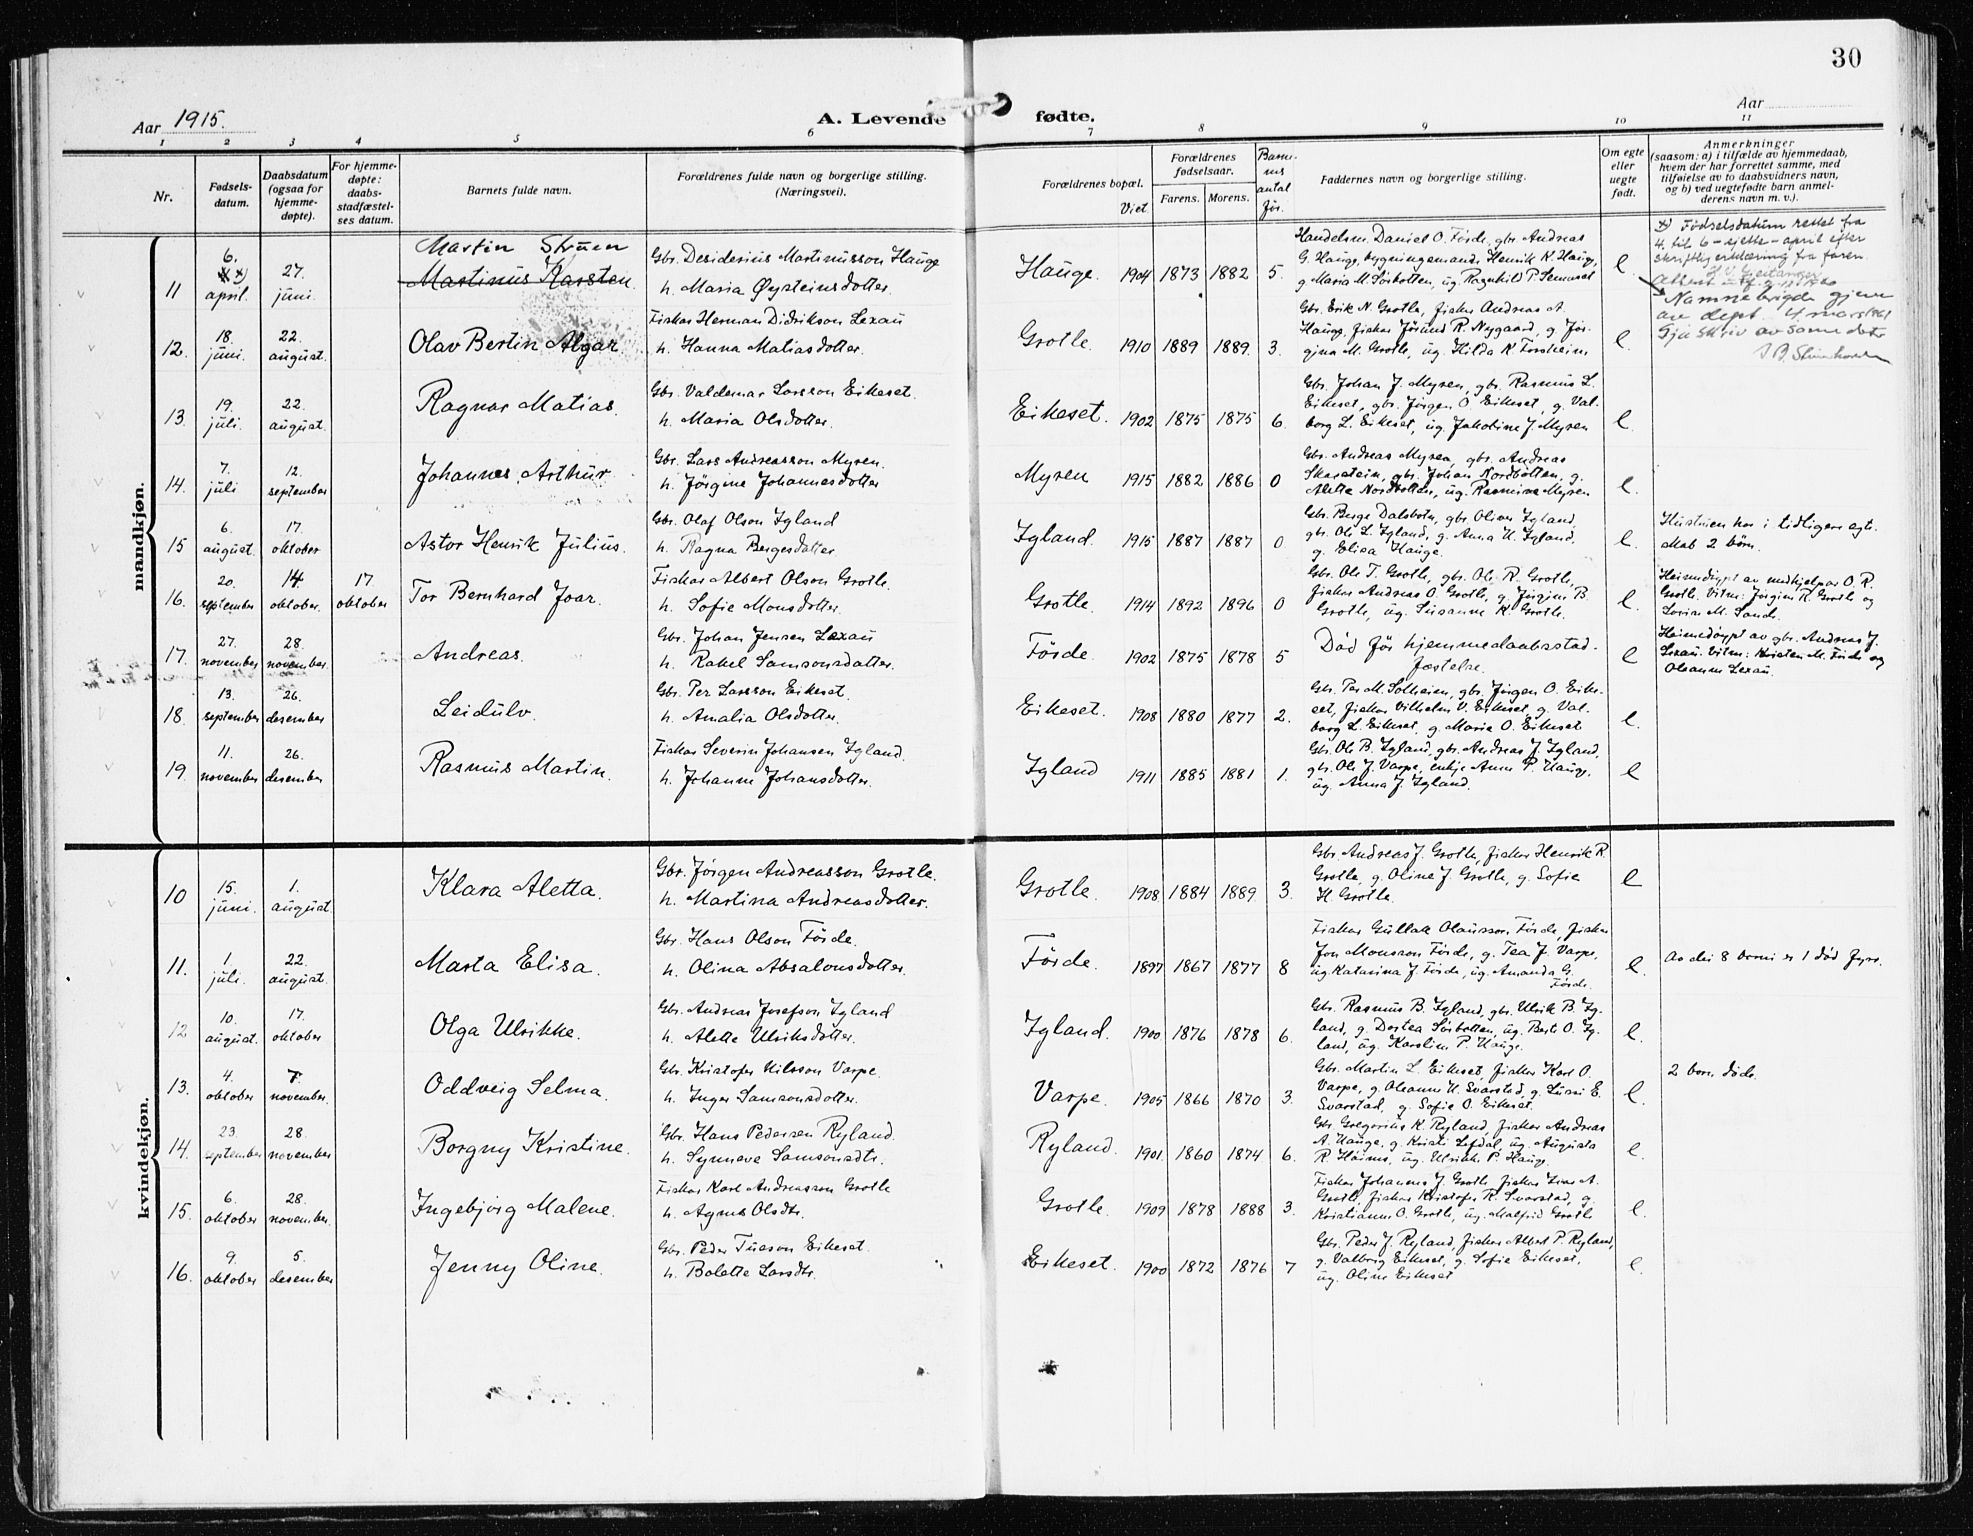 30
Aar 1915.
A. Levende fødte.
Aar
1 2 3 4 5 6 7 8 9 10 11
Nr.
Fødsels-datum.
Daabsdatum (ogsaa for hjemme-døpte).
For hjemme-døpte: daabs-stadfæstel-ses datum.
Barnets fulde navn.
Forældrenes fulde navn og borgerlige stilling. (Næringsvei).
Forældrenes bopæl.
Viet.
Forældrenes fødselsaar.
Farens. Morens.
Barne-antal før.
Faddernes navn og borgerlige stilling.
Om egte eller uegte født.
Anmerkninger
(saasom: a) i tilfælde av hjemmedaab,
hvem der har forrettet samme, med
tilføielse av to daabsvidners navn,
og b) ved uegtefødte barn anmel-
derens navn m. v.).
mandkjøn.
11 6. april. 27. juni.
Martin Struen
Martinus Karsten.
Gbr. Desiderius Martinusson Hauge
h. Maria Øysteinsdotter.
Hauge. 1904 1873 1882 5.
Handelsm. Daniel O. Förde, gbr. Andreas
G. Hauge, bygningsmand Henrik K. Hauge,
g. Maria M. Sörbotten, ug. Ragnhild P. Semmset
e.
x) Fødselsdatum rettet fra
4. til 6 - sjette - april efter
skriftlig erklæring fra faren.
Namnebrigde gjeve
av dept. 4 mars 1961
Gju skriv av same dato
12. 18. juni. 22. august.
Olav Bertin Algar
Fiskar Herman Didrikson Lexau
h. Hanna Matiasdotter.
Grotle. 1910 1889 1889. 3.
Gbr. Erik N. Grotle, fiskar Andreas A.
Hauge, fiskar Jörund R. Nygaard, g. Jör-
gina M. Grotle, ug. Hilda K. Forsheim
e.
13. 19. juli. 22. august.
Ragnar Matias.
Gbr. Valdemar Larsson Eikeset.
h. Maria Olsdotter.
Eikeset. 1902 1875 1875 6.
Gbr. Johan J. Myren, gbr. Rasmus L.
Eikeset, gbr. Jörgen O. Eikeset, g. Val-
borg L. Eikeset, ug. Jakobine J. Myren
e.
14. 7. juli 12. september
Johannes Arthur.
Gbr. Lars Andreasson Myren.
h. Jörgine Johannesdotter
Myren 1915 1882 1886 0
Gbr. Andreas Myren, gbr. Andreas
Skarstein, gbr. Johan Nordbotten, g.
Alette Nordbotten, ug. Rasmine Myren
e.
15 6. august. 17. oktober
Astor Henrik Julius.
Gbr. Olaf Olson Igland
h. Ragna Bergesdotter
Igland. 1915 1887 1887 0.
Gbr. Berge Dalsbotn, gbr. Oliver Igland,
gbr. Ole L. Igland, g. Anna U. Igland,
g. Elisa Hauge.
e.
Hustruen har i tidligere egt.
skab 2 börn.
16. 20. september 14. oktober. 17. oktober
Tor Bernhard Joar.
Fiskar Albert Olson Grotle.
h. Sofie Monsdotter.
Grotle. 1914 1892 1896 0
Gbr. Ole T. Grotle, gbr. Ole R. Grotle,
fiskar Andreas O. Grotle, g. Jörgine B.
Grotle, ug. Susanne K. Grotle.
e.
Heimedöypt av medhjelpar O. R.
Grotle. Vitne: Jörgine R. Grotle og
Lovise M. Sande.
17. 27. november 28. november.
Andreas.
Gbr. Johan Jensen Lexau
h. Rakel Samsonsdotter.
Förde. 1902 1875 1878 5
Död för hjemmedaabsstad-
fæstelse.
e
Heimedöypt av gbr. Andreas J.
Lexau. Vitne: Kristen M. Förde og
Oleanna Lexau.
18. 13. september 26. desember
Leidulv.
Gbr. Per Larsson Eikeset.
h. Amalia Olsdotter.
Eikeset. 1908 1880 1877 2.
Gbr. Per M. Solheim, gbr. Jörgen O. Eike-
set, fiskar Vilhelm V. Eikeset, g. Val-
borg L. Eikeset, g. Maria O. Eikeset
e.
19. 11. november 26. desember
Rasmus Martin.
Fiskar Severin Johansen Igland.
h. Johanne Johansdotter.
Igland 1911 1885 1881 1.
Gbr. Ole B. Igland, gbr. Andreas J. Igland,
gbr. Ole J. Varpe, enkje Anne P. Hauge,
ug. Anna J. Igland.
e
kvindekjøn.
10 15. juni. 1. august.
Klara Aletta.
Gbr. Jörgen Andreasson Grotle.
h. Martina Andreasdotter.
Grotle. 1908 1884 1889 3.
Gbr. Andreas J. Grotle, fiskar Henrik R.
Grotle, g. Oline J. Grotle, g. Sofie
H. Grotle.
e
11. 1. juli. 22. august.
Marta Elisa.
Gbr. Hans Olson Förde.
h. Olina Absalonsdotter.
Förde. 1897 1867 1877 8
Fiskar Gullak Olausson Förde, fiskar
Jon Monsson Förde, g. Tea J. Varpe,
ug. Katarina J. Förde, ug. Amanda G.
Förde.
e.
Av dei 8 borni er 1 död fyrr.
12 10. august. 17. oktober
Olga Ulrikke.
Gbr. Andreas Josefson Igland
h. Alette Ulriksdotter.
Igland. 1900 1876 1878 6.
Gbr. Rasmus B. Igland, gbr. Ulrik B. Ig-
land, g. Dortea Sörbotten, ug. Berte O. Ig-
land, ug. Karoline P. Hauge.
e.
13. 4. oktober 7. november.
Oddveig Selma.
Gbr. Kristofer Nilsson Varpe.
h. Inger Samsonsdotter.
Varpe. 1905 1866 1870 3.
Gbr. Martin L. Eikeset, fiskar Karl O.
Varpe, g. Oleanna U. Svarstad, g. Lussi E.
Svarstad, g. Sofie O. Eikeset.
e.
2 born döde.
14. 23. september 28. november
Borgny Kristine.
Gbr. Hans Pedersen Ryland.
h. Synneve Samsonsdtr.
Ryland. 1901. 1860 1874 6.
Gbr. Gregorius K. Ryland, fiskar Andreas
A. Hauge, g. Kristi Lefdal, ug. Augusta
R. Haines, ug. Ulrikke P. Hauge.
e.
15. 6. oktober 28. november.
Ingebjörg Malene.
Fiskar Karl Andreasson Grotle
h. Agnes Olsdtr.
Grotle. 1909 1878 1888 3.
Fiskar Johannes J. Grotle, fiskar Ivar A.
Grotle, fiskar Kristofer R. Svarstad, g.
Kristianne O. Grotle, ug. Malfrid Grotle
e.
16. 9. oktober 5. desember
Jenny Oline.
Gbr. Peder Tueson Eikeset.
h. Bolette Larsdtr.
Eikeset. 1900 1872 1876 7
Gbr. Peder J. Ryland, fiskar Albert P. Ryland,
g. Valborg Eikeset, g. Sofie Eikeset,
ug. Oline Eikeset
e.